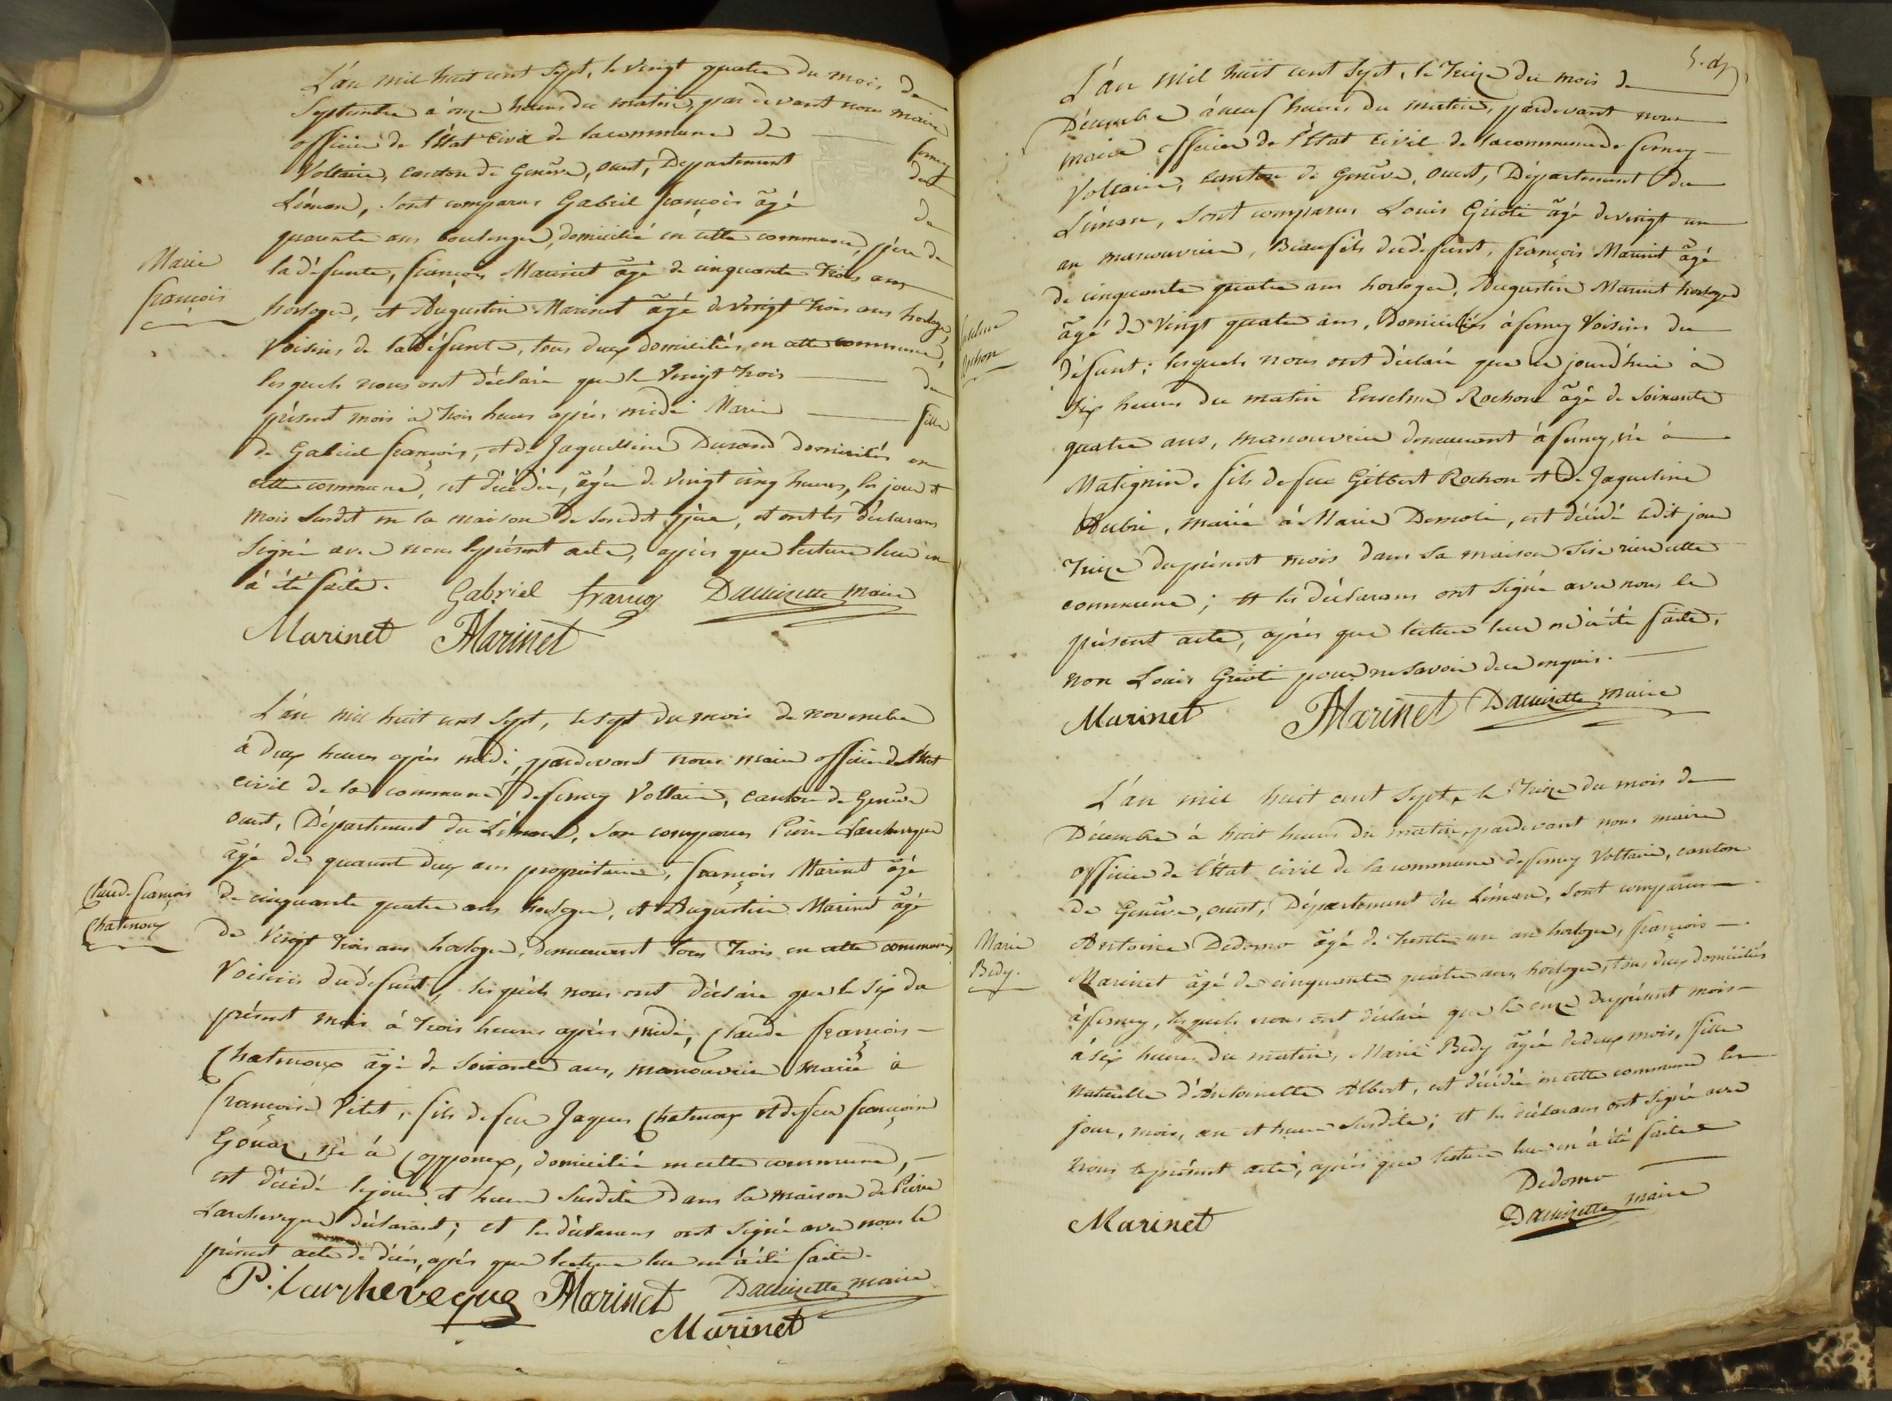 L'an mil huit cent sept, le vingt quatre du mois de
Septembre à onze heures du matin, par devant nous maire
officier de l'État Civil de la commune de fernex
Voltaire, canton de Genève, ouest, Département du
Léman, sont comparus Gabriel françois âgé de
quarente ans boulenger, domicilié en cette commune, père de
la défunte, françois Marinet âgé de cinquante trois ans
horloger, et Augustin Marinet âgé de vingt trois ans horloger,
Voisins de la défunte, tous deux domiciliés en cette commune,
lesquels nous ont déclaré que le vingt trois du
présent mois à trois heures après midi Marie fille
de Gabriel françois, et de Jaquelline Durand domiciliés en
cette commune, est décédée, âgée de vingt cinq heures, les jour et
mois susdit en la maison de sondit père, et ont les déclarans
signé avec nous le présent acte, après que lecture leur en
à été faite.
Marie
françois
Gabriel françois Dauizette maire
Marinet AMarinet
L'an mil huit cent sept, le sept du mois de novembre
à deux heures après midi, pardevant nous maire officier de l'État
civil de la commune de ferney Voltaire, canton de Genève
ouest, Département du Léman, sont comparus Pierre Larcheveque
âgé de quarant deux ans propriétaire, françois Marinet âgé
de cinquante quatre ans horloger, et Augustin Marinet âgé
de vingt trois ans horloger, demeurant tous trois en cette commune,
Voisins du défunt, lesquels nous ont déclaré que le six du
présent mois à trois heures après midi, Claude françois
Chatenoux âgé de soixante ans, manouvrier marié à
françoise Vitet, fils de feu Jaques Chatenoux et de feu françoise
Goüax, né à Copponex, domicilié en cette commune,
est décédé le jour et heure susdite dans la maison de Pierre
Larcheveque déclarant; et les déclarans ont signé avec nous le
présent acte de décès, après que lecture leur en à été faite.
Claude françois
Chatenoux
P. Larcheveque AMarinet Dauizette maire
Marinet
L'an mil huit cent sept, le treize du mois de
Décembre à neuf heures du matin, pardevant nous
maire officier de l'État civil de la commune de ferney
Voltaire, canton de Genève, ouest, Département du
Léman, sont comparus Louis Grioti âgé de vingt un
an manouvrier, Beaufils du défunt, françois Marinet âgé
de cinquante quatre ans horloger, Augustin Marinet horloger
âgé de vingt quatre ans, Domiciliés à ferney Voisins du
défunt; lesquels nous ont déclaré que ce jourd'hui à
six heures du matin Enselme Rochon âgé de soixante
quatre ans, manouvrier demeurant à ferney, né à
Matignin, fils de feu Gilbert Rochon et de Jaqueline
Aubri, marié à Marie Demoli, est décédé ledit jour
treize du présent mois dans sa maison sise rière cette
commune; et les déclarans ont signé avec nous le
présent acte, après que lecture leur en à été faite,
non Louis Grioti pour ne savoir de ce enquis.
Rochon
Marinet AMarinet Dauizette maire
L'an mil huit cent sept, le treize du mois de
Décembre à huit heures du matin, pardevant nous maire
officier de l'État civil de la commune de ferney Voltaire, canton
de Genève, ouest, Département du Léman, sont comparus
Antoine Dedomo âgé de trente un an horloger, françois
Marinet âgé de cinquante quatre ans, horloger, tous deux domiciliés
à ferney, lesquels nous ont déclaré que le onze du présent mois
à six heures du matin, Marie Bedy âgée de deux mois, fille
naturelle d'Antoinette Albert, est décédée en cette commune les
jour, mois, an et heure susdite; et les déclarans ont signé avec
nous le présent acte, après que lecture leur en à été faite
Marie
Bedy.
Dedomo
Marinet Dauizette maire